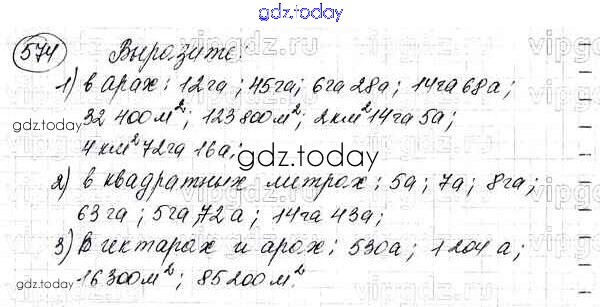 gdz.today
574 Выразите:
1) в арах: 12га; 45га; 6га 28а; 14га 68а;
32 400м²; 123800м²; 2км² 14га 5а;
gdz.today
4км² 72га 16а;
gdz.today
2) в квадратных метрах: 5а; 7а; 8га;
63га; 5га 72а; 14га 43а;
3) В гектарах и арах: 530а; 1204а;
16300м²; 85200м².
gdz.today